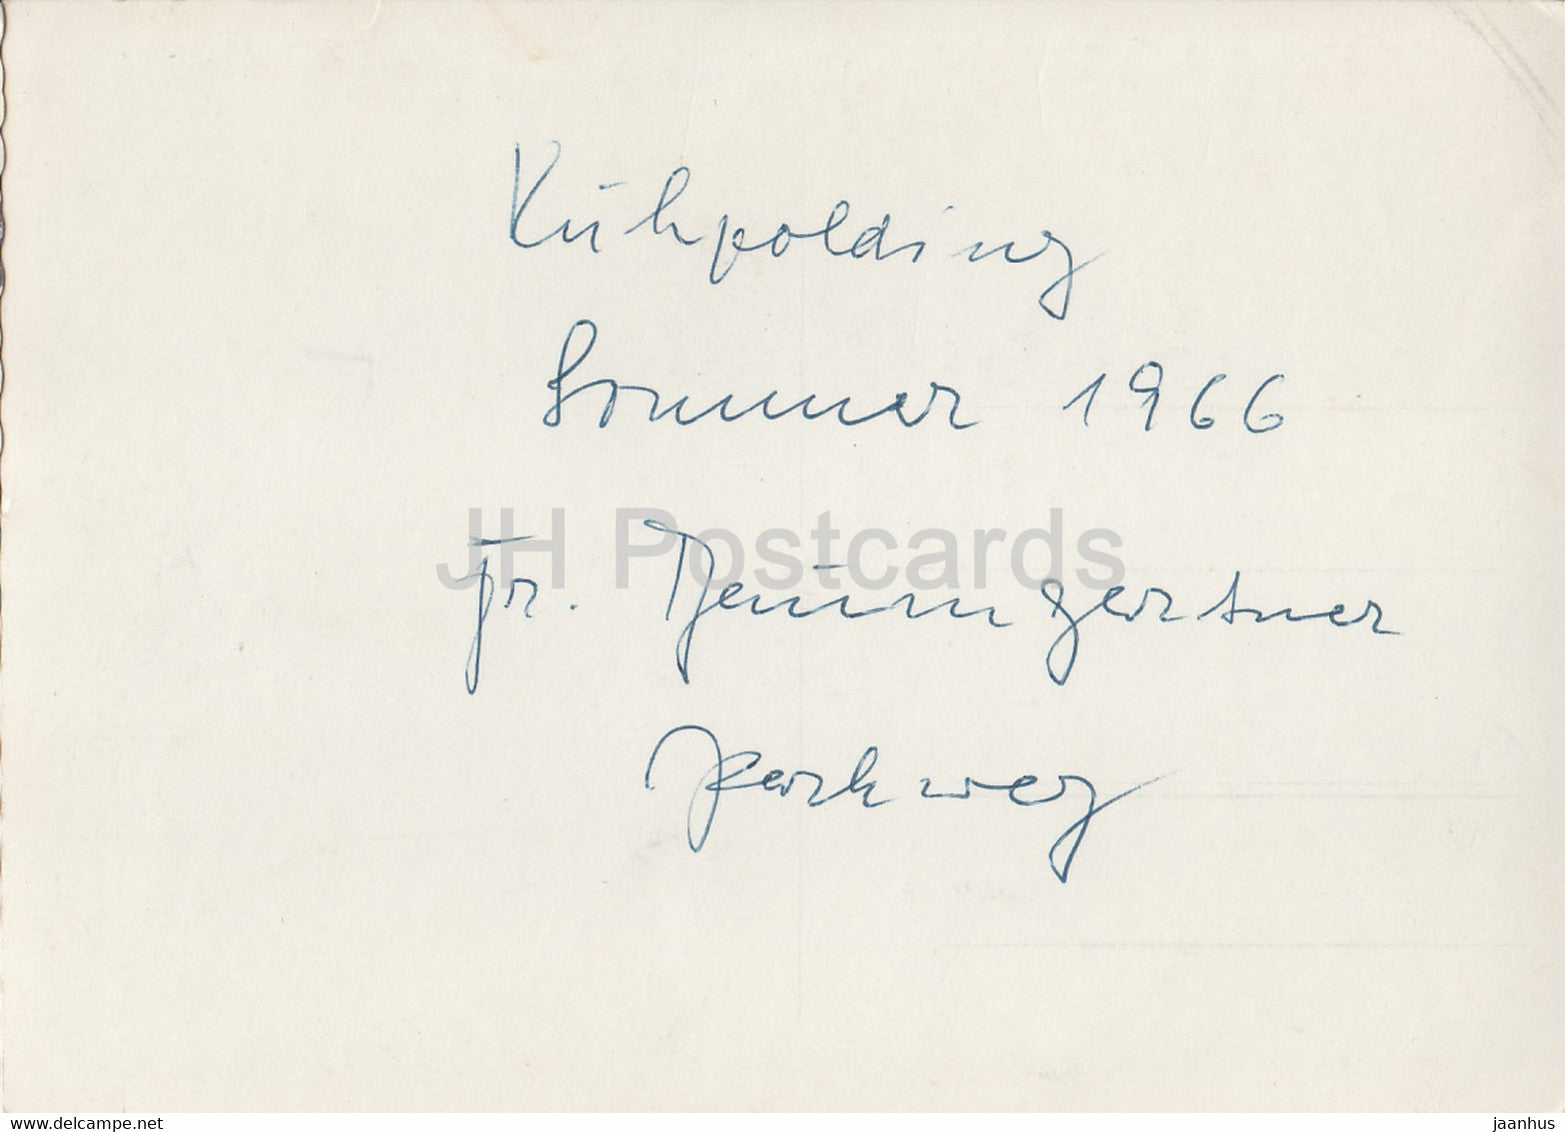 Ruhpolding
Sommer 1966
JH Postcards
Fr. Baumgartner
Parkweg
delcampe.net
jaanhus